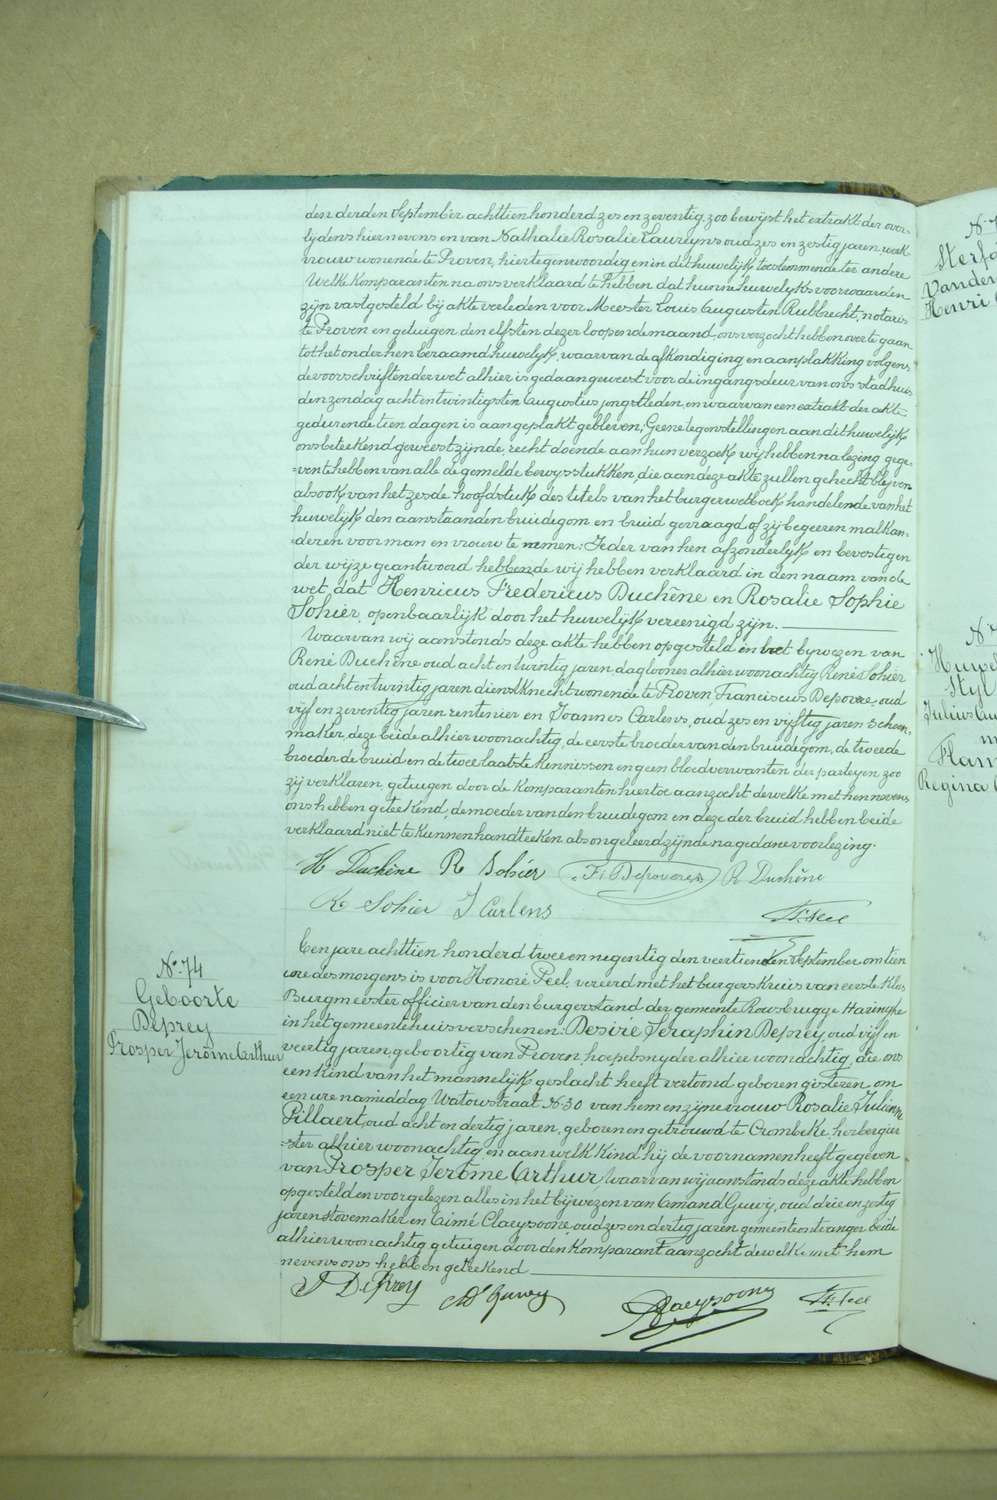 den derden September achttien honderd zes en zeventig, zoo bewijst het extrakt der over-
lijdens hiernevens en van Nathalie Rosalie Laureyns oud zes en zestig jaren, werk
vrouw wonende te Proven, hier tegenwoordig en in dit huwelijk toestemmende ter andere
Welke Komparanten na ons verklaard te hebben dat hunne huwelijksvoorwaarden
zijn vastgesteld bij akte verleden voor Meester Louis Augusten Rubbrecht, notaris
te Proven en getuigen den elfsten dezer loopende maand, ons verzocht hebben over te gaan
tot het onder hen beraamd huwelijk, waarvan de afkondiging en aanplakking volgens
de voorschriften der wet alhier is gedaan geweest voor de ingangsdeur van ons stadhuis
den zondag acht en twintigsten Augustus jongstleden, en waarvan een extrakt der akte
gedurende tien dagen is aangeplakt gebleven; Geene tegenstellingen aan dit huwelijk
ons beteekend geweest zijnde, recht doende aan hun verzoek wij hebben na lezing gege-
=ven te hebben van alle de gemelde bewysstukken, die aan deze akte zullen gehecht blyven
alsook van het zesde hoofdstuk des titels van het burgerwetboek, handelende van het
huwelijk den aanstaanden bruidegom en bruid gevraagd of zij begeeren malkan-
deren voor man en vrouw te nemen; Ieder van hen afzonderlijk en bevestigen
der wijze geantwoord hebbende wij hebben verklaard in den naam van de
wet, dat Henricus Fredericus Duchêne en Rosalie Sophie
Sohier, openbaarlijk door het huwelijk vereenigd zijn.
Waarvan wij aanstonds deze akte hebben opgesteld in het bijwezen van
René Duchêne oud acht en twintig jaren, daglooner alhier woonachtig, René Sohier
oud acht en twintig jaren dienstknecht wonende te Proven, Franciscus Depovere, oud
vijf en zeventig jaren rentenier en Joannes Carlens, oud zes en vijftig jaren schoen-
maker, deze beide alhier woonachtig, de eerste broeder van den bruidegom, de tweede
broeder de bruid en de twee laatste kennissen en geen bloedverwanten der parteyen zoo
zij verklaren, getuigen door de Komparanten hiertoe aanzocht dewelke met hen nevens
ons hebben geteekend, de moeder van den bruidegom en deze der bruid hebben beide
verklaard niet te kunnen handteeken als ongeleerd zijnde na gedane voorlezing.
H Duchêne R Sohier F. Depovere R Duchêne
R Sohier J Carlens H. Peel
N.º 74
Geboorte
Deprey
Prosper Jerôme Arthur
Een jare achttien honderd twee en negentig den veertienden September om tien
ure des morgens is voor Honoré Peel, vereerd met het burgerskruis van eerste Klas
Burgmeester officier van den burgerstand der gemeente Rousbrugge Haringhe
in het gemeentehuis verschenen: Desiré Seraphin Deprey, oud vijf en
veertig jaren, geboortig van Proven, hoepelsnyder alhier woonachtig, die ons
een kind van het mannelijk geslacht heeft vertoond geboren gisteren om
een ure namiddag Watoustraat N. 30 van hem en zijne vrouw Rosalie Julienne
Pillaert, oud acht en dertig jaren, geboren en getrouwd te Crombeke, herbergier
=ster alhier woonachtig en aan welk Kind hij de voornamen heeft gegeven
van Prosper Jerôme Arthur, Waarvan wij aanstonds deze akte hebben
opgesteld en voorgelezen alles in het bijwezen van Amand Gewy, oud drie en zestig
jaren stovemaker en Aimé Claeysoone, oud zes en dertig jaren, gemeenteontvanger beide
alhier woonachtig getuigen door den Komparant aanzocht dewelke met hem
nevens ons hebben geteekend
Deprey Ad Gewy A Claeysoone H. Peel
Sterf
Vander
Henri
Huwel
Styl
Julius Au
Flam
Regina